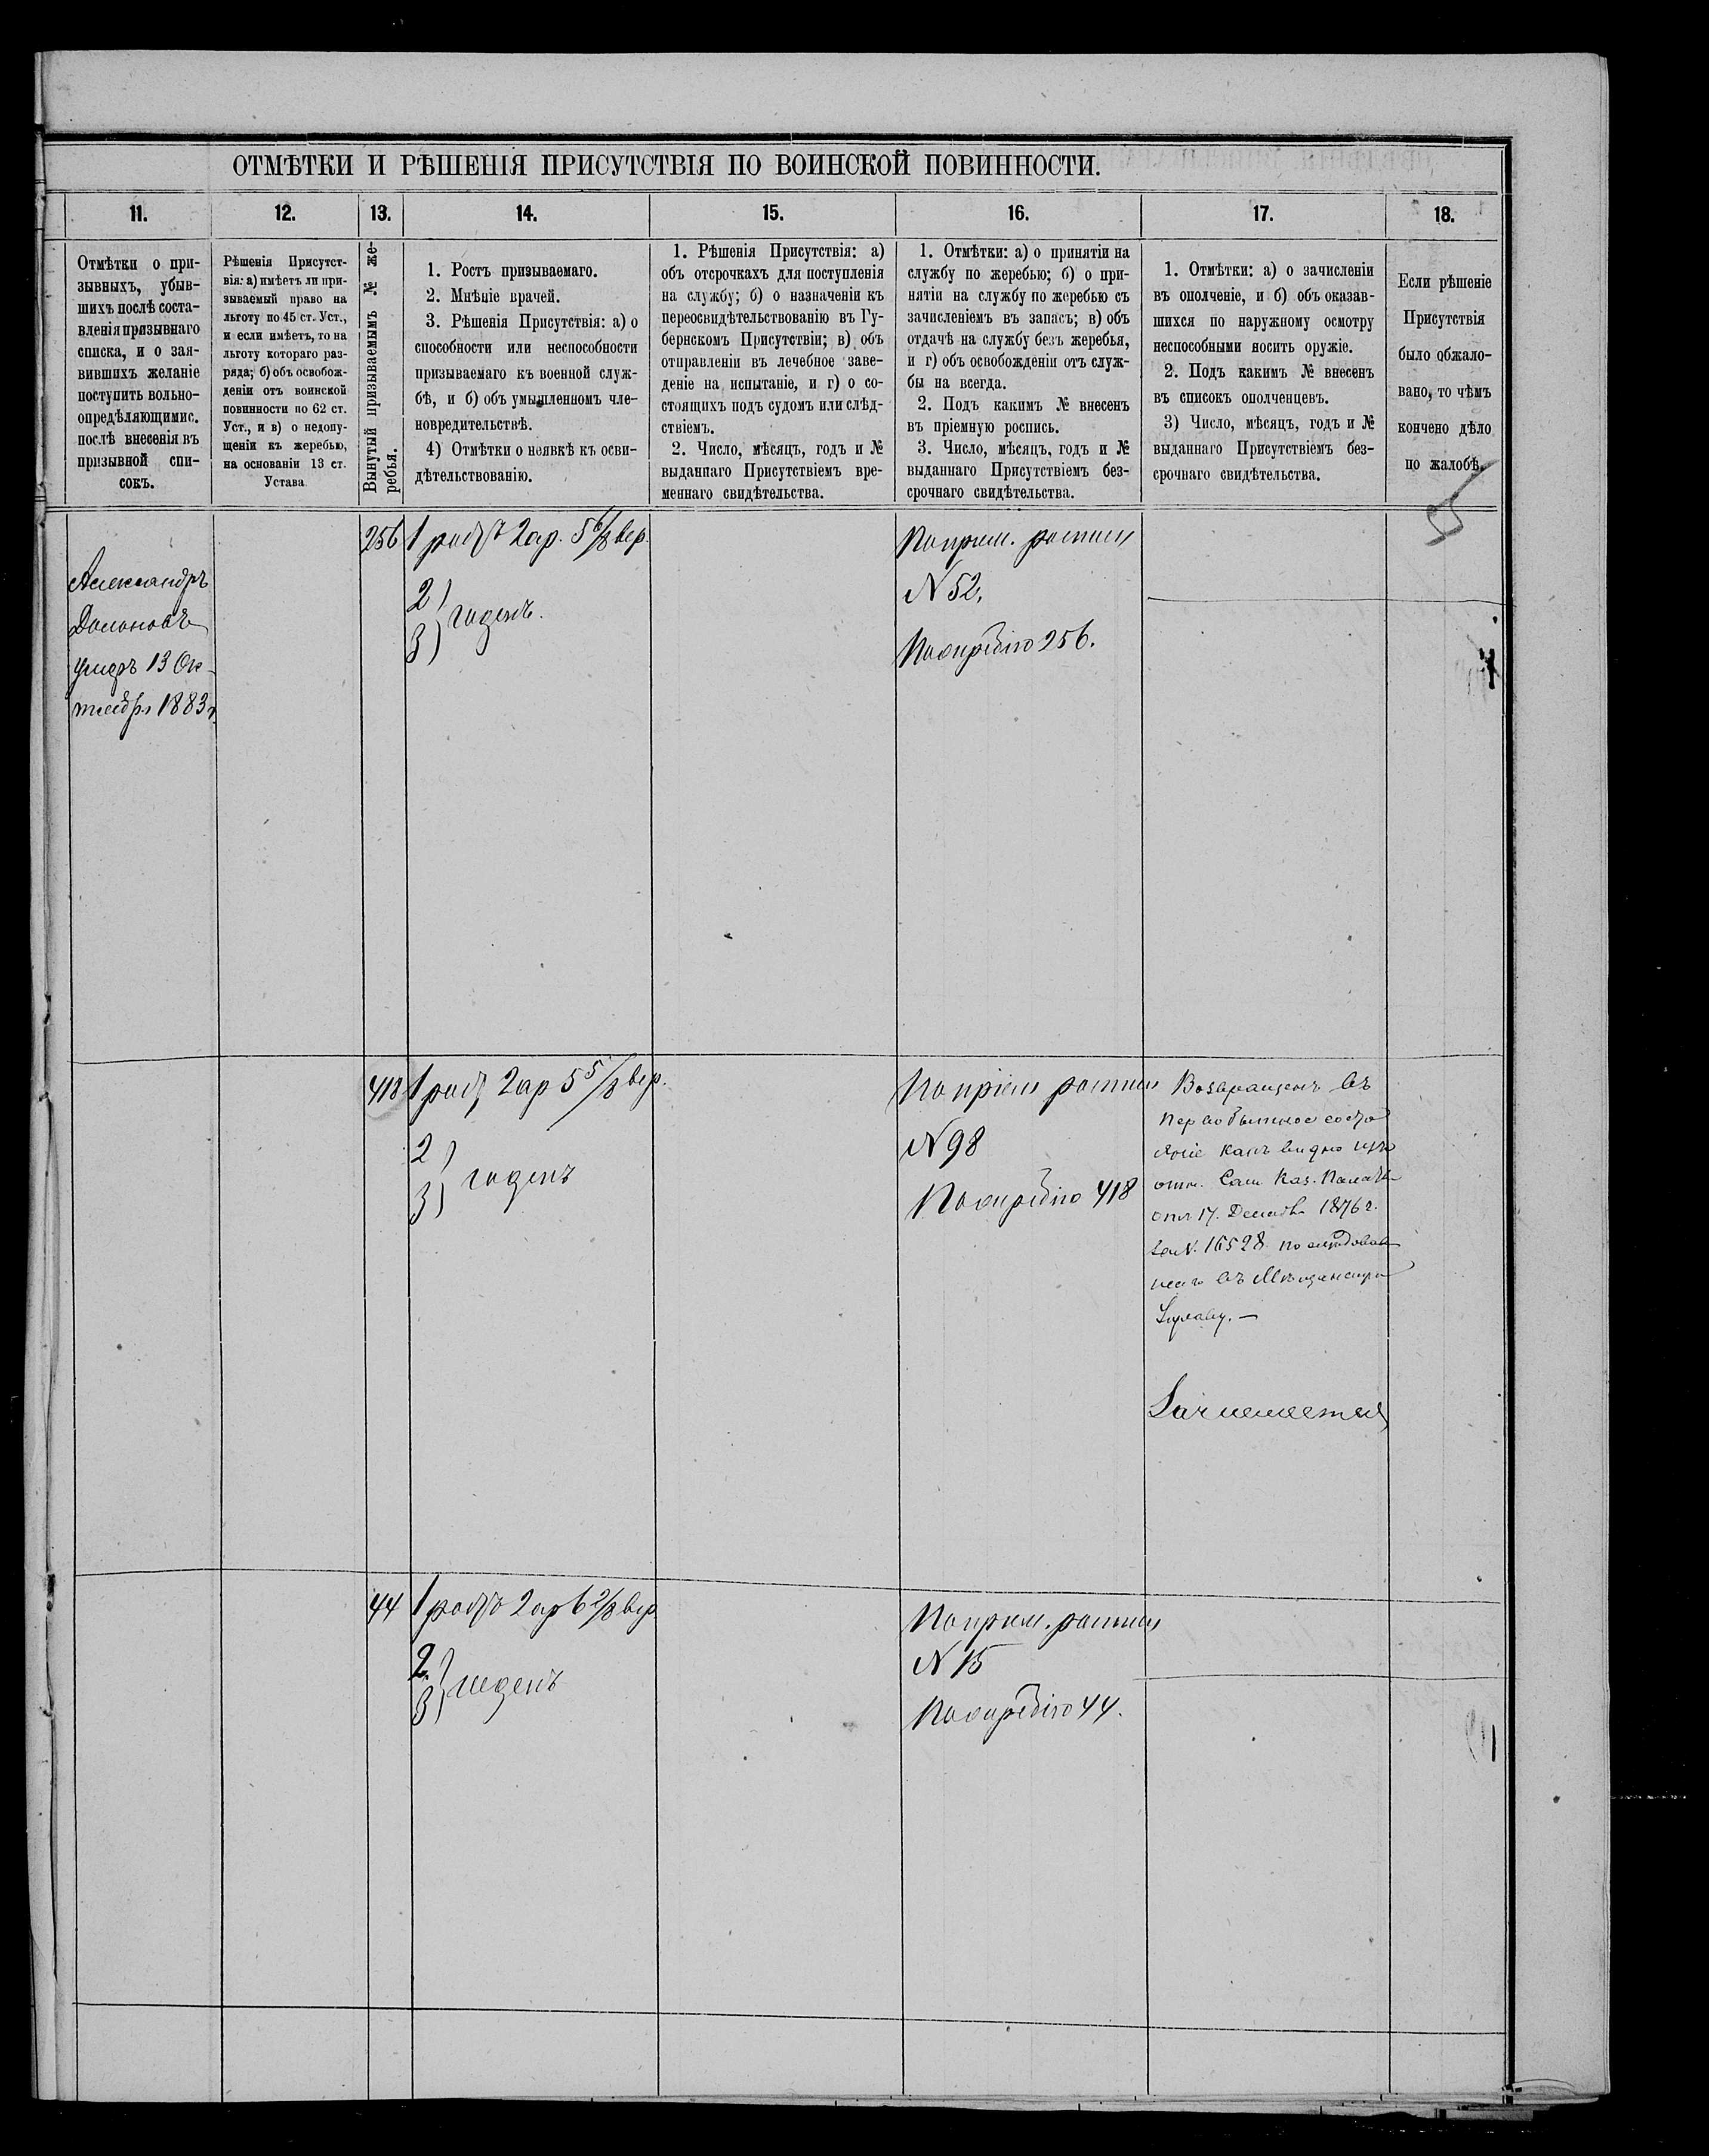 ОТМѢТКИ И РѢШЕНІЯ ПРИСУТСТВІЯ ПО ВОИНСКОЙ ПОВИННОСТИ.
11.
12.
13.
14.
15.
16.
17.
18.
Отмѣтки о при-
зывныхъ, убыв-
шихъ послѣ соста-
вленія призывнаго
списка, и о зая-
вившихъ желаніе
поступить вольно-
опредѣляющимис.
послѣ внесенія въ
призывной спи-
сокъ.
Рѣшенія Присутст-
вія: а) имѣетъ ли при-
зываемый право на
льготу по 45 ст. Уст.,
и если имѣетъ, то на
льготу котораго раз-
ряда; б) объ освобож-
деніи отъ воинской
повинности по 62 ст.
Уст., и в) о недопу-
щеніи къ жеребью,
на основаніи 13 ст.
Устава
Вынутый призываемымъ № же-
ребья.
1. Ростъ призываемаго.
2. Мнѣніе врачей.
3. Рѣшенія Присутствія: а) о
способности или неспособности
призываемаго къ военной служ-
бѣ, и б) объ умышленномъ чле-
новредительствѣ.
4) Отмѣтки о неявкѣ къ осви-
дѣтельствованію.
1. Рѣшенія Присутствія: а)
объ отсрочкахъ для поступленія
на службу; б) о назначеніи къ
переосвидѣтельствованію въ Гу-
бернскомъ Присутствіи; в) объ
отправленіи въ лечебное заве-
деніе на испытаніе, и г) о со-
стоящихъ подъ судомъ или слѣд-
ствіемъ.
2. Число, мѣсяцъ, годъ и №
выданнаго Присутствіемъ вре-
меннаго свидѣтельства.
1. Отмѣтки: а) о принятіи на
службу по жеребью; б) о при-
нятіи на службу по жеребью съ
зачисленіемъ въ запасъ; в) объ
отдачѣ на службу безъ жеребья,
и г) объ освобожденіи отъ служ-
бы на всегда.
2. Подъ какимъ № внесенъ
въ пріемную роспись.
3. Число, мѣсяцъ, годъ и №
выданнаго Присутствіемъ без-
срочнаго свидѣтельства.
1. Отмѣтки: а) о зачисленіи
въ ополченіе, и б) объ оказав-
шихся по наружному осмотру
неспособными носить оружіе.
2. Подъ какимъ № внесенъ
въ списокъ ополченцевъ.
3) Число, мѣсяцъ, годъ и №
выданнаго Присутствіемъ без-
срочнаго свидѣтельства.
Если рѣшеніе
Присутствія
было обжало-
вано, то чѣмъ
кончено дѣло
по жалобѣ.
5
Александръ
умеръ 13 Ок-
тября 1883 г.
256
1 ростъ 2 ар. 5 6/8 вер.
2)
3) годенъ.
По прием. росписи
N 52,
По жеребью 256.
418
1 рост 2 ар 5 5/8 вер.
2)
3) годенъ
По пріем росписи
N 98
По жеребью 418
Возвращенъ въ
первобытное состо
яніе какъ видно изъ
отн. Сам Каз. Палаты
отъ 17. Декабр 1876 г.
за N. 16528 по слѣдовав
шаго въ Мѣщанскую
Управу. —
44
1 ростъ 2 ар 6 2/8 вер
2.
3) годенъ
По прием. росписи
N 15
По жеребью 44.